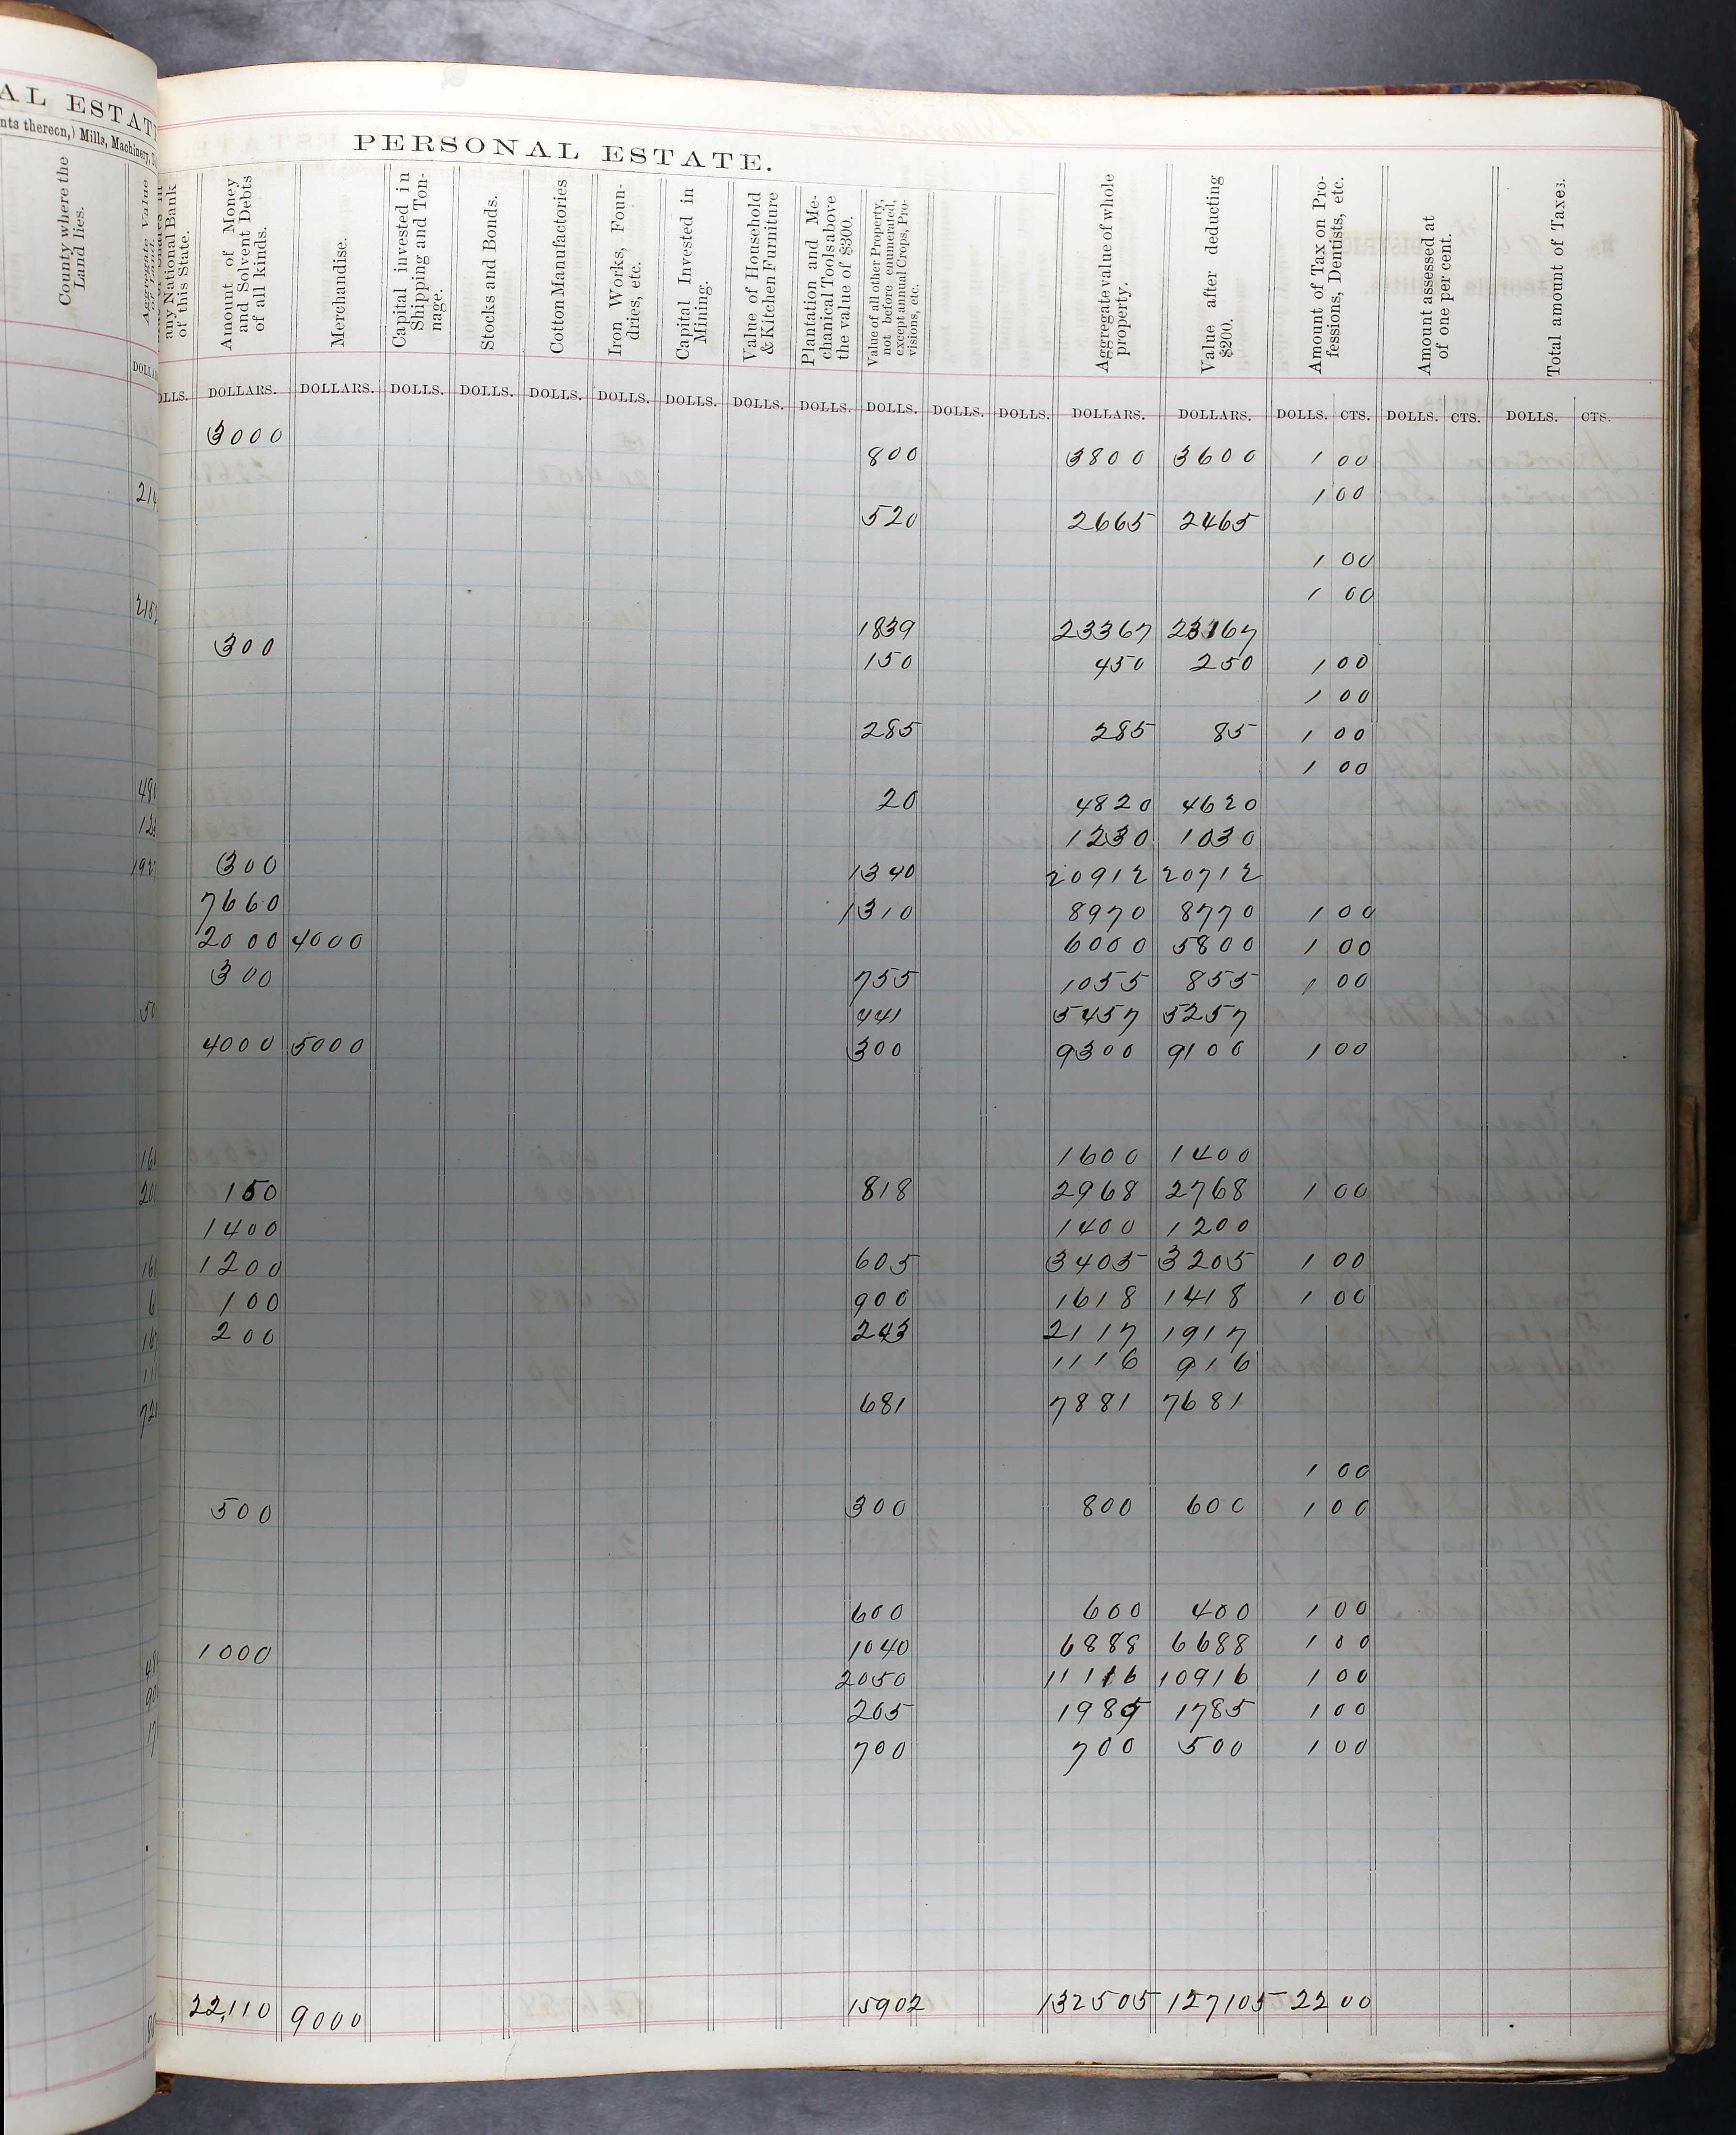 AL ESTATE
nts thereon,) Mills, Machinery,
PERSONAL ESTATE.
County where the Land lies.
Aggregate Value of Land.
any National Bank of this State.
Amount of Money and Solvent Debts of all kinds.
Merchandise.
Capital invested in Shipping and Tonnage.
Stocks and Bonds.
Cotton Manufactories
Iron Works, Foundries, etc.
Capital Invested in Mining.
Value of Household & Kitchen Furniture
Plantation and Mechanical Tools above the value of $300.
Value of all other Property, not before enumerated, except annual Crops, Provisions, etc.
Aggregate value of whole property.
Value after deducting $200.
Amount of Tax on Professions, Dentists, etc.
Amount assessed at of one per cent.
Total amount of Taxes.
DOLLS. DOLLARS. DOLLARS. DOLLS. DOLLS. DOLLS. DOLLS. DOLLS. DOLLS. DOLLS. DOLLS. DOLLS. DOLLS. DOLLARS. DOLLARS. DOLLS. CTS. DOLLS. CTS. DOLLS. CTS.
3000 800 3800 3600 1 00
1 00
520 2665 2465
1 00
1 00
1839 23367 23167
300 150 450 250 1 00
1 00
285 285 85 1 00
1 00
20 4820 4620
1230 1030
300 1340 20912 20712
7660 1310 8970 8770 1 00
2000 4000 6000 5800 1 00
300 755 1055 855 1 00
441 5457 5257
4000 5000 300 9300 9100 1 00
1600 1400
150 818 2968 2768 1 00
1400 1400 1200
1200 605 3405 3205 1 00
100 900 1618 1418 1 00
200 243 2117 1917
1116 916
681 7881 7681
1 00
500 300 800 600 1 00
600 600 400 1 00
1000 1040 6888 6688 1 00
2050 11116 10916 1 00
205 1985 1785 1 00
700 700 500 1 00
22,110 9000 15902 132505 127105 22 00